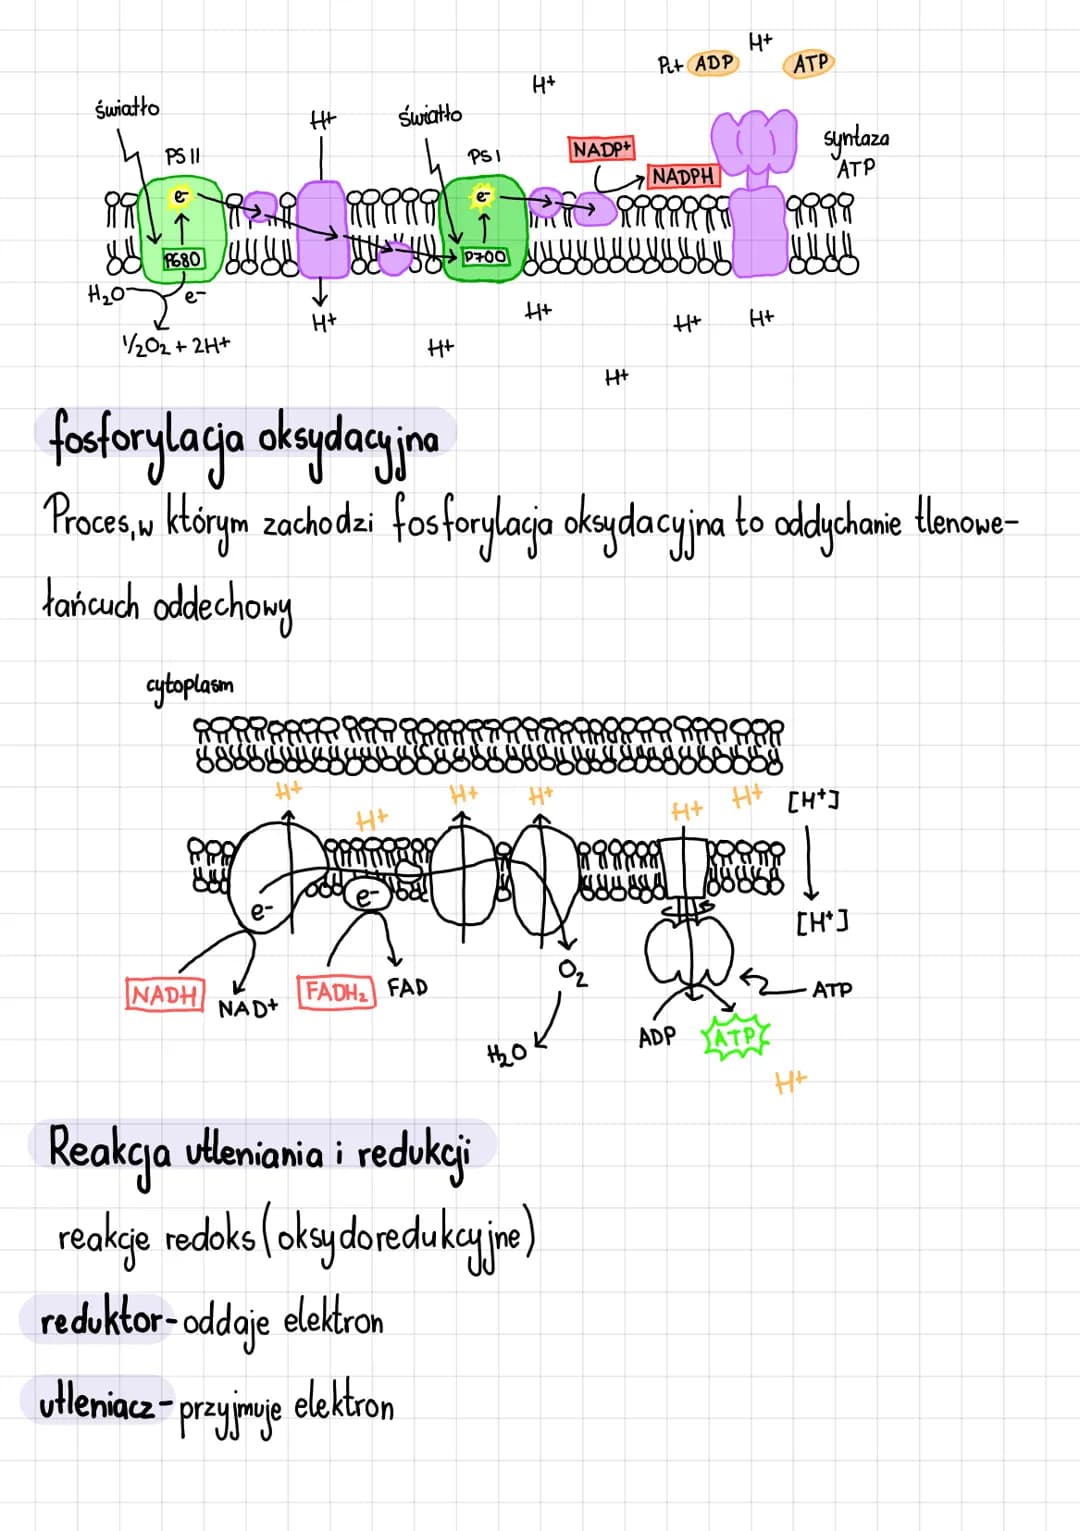 H+
Pi+ ADP
ATP
H+
światło
H+
światło
PS II
PS I
NADP+
NADPH
syntaza
ATP
e-
e-
P680
P700
H₂O
e-
½O₂ + 2H+
H+
H+
H+
H+
H+
H+
fosforylacja oksydacyjna
Proces, w którym zachodzi fosforylacja oksydacyjna to oddychanie tlenowe-
łańcuch oddechowy
cytoplasm
H+
H+
H+
H+
H+
H+
[H+]
e-
e-
[H+]
NADH
NAD+
FADH₂
FAD
O₂
H₂O
ATP
ADP
ATP
H+
Reakcja utleniania i redukcji
reakcje redoks (oksydoredukcyjne)
reduktor-oddaje elektron
utleniacz-przyjmuje elektron